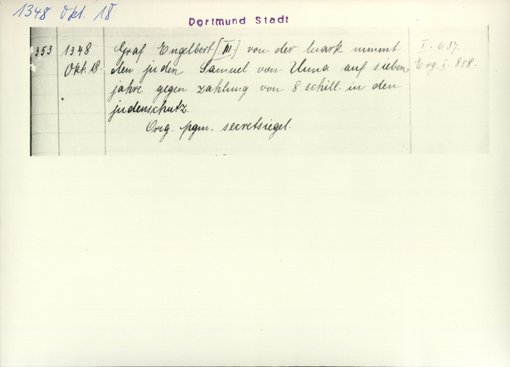 1348 Okt. 18
Dortmund Stadt
353 1348 Graf Engelbert [III.] von der Mark nimmt I. 637.
Okt. 18 den juden Samuel von Unna auf sieben Erg. I. 858.
jahre gegen zahlung von 8 schill. in den
judenschutz.
Orig. pgm. secretsiegel.